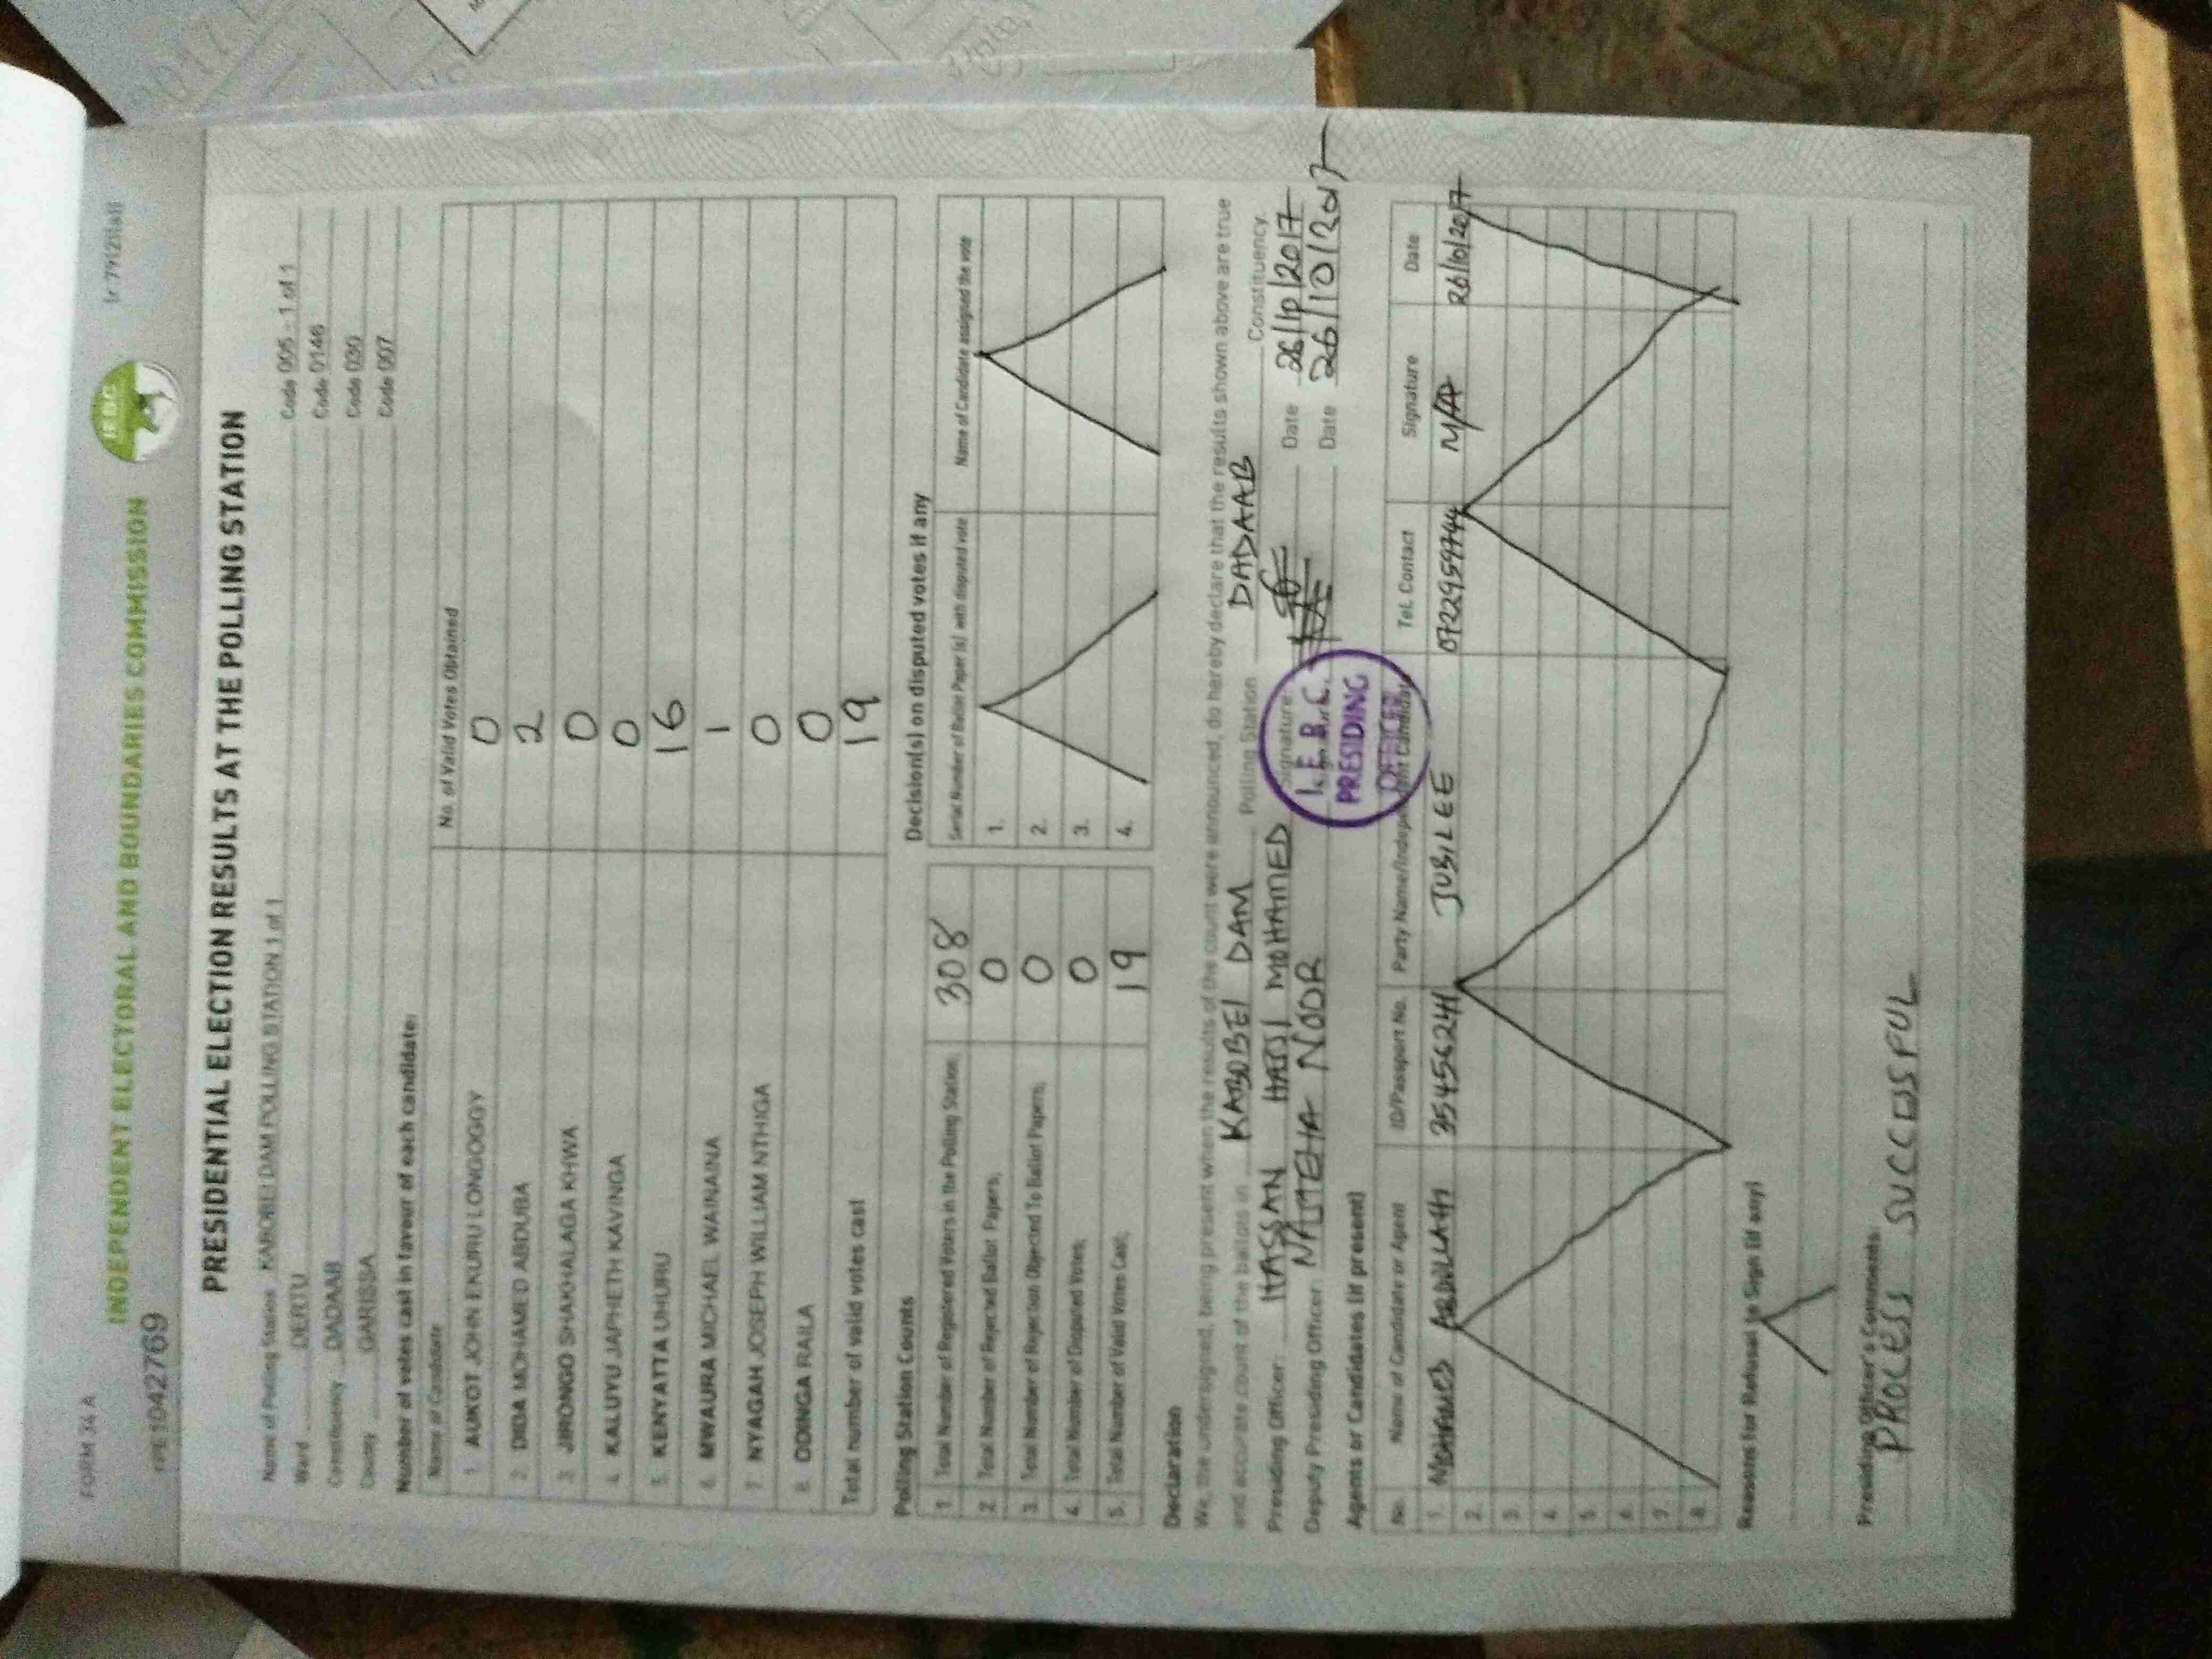 FORM 34 A
INDEPENDENT ELECTORAL AND BOUNDARIES COMMISSION
IEBC
PRESIDENTIAL ELECTION RESULTS AT THE POLLING STATION
Name of Polling Station KABOBEI DAM POLLING STATION 1 of 1 Code 005 - 1 of 1
Ward DERTU Code 0146
Constituency DADAAB Code 030
County GARISSA Code 007
Number of votes cast in favour of each candidate:
Name of Candidate No. of Valid Votes Obtained
1. AUKOT JOHN EKURU LONGOGGY 0
2. DIDA MOHAMED ABDUBA 2
3. JIRONGO SHAKHALAGA KHWA 0
4. KALUYU JAPHETH KAVINGA 0
5. KENYATTA UHURU 16
6. MWAURA MICHAEL WAINAINA 1
7. NYAGAH JOSEPH WILLIAM NTHIGA 0
8. ODINGA RAILA 0
Total number of valid votes cast 19
Polling Station Counts
1. Total Number of Registered Voters in the Polling Station; 308
2. Total Number of Rejected Ballot Papers; 0
3. Total Number of Rejection Objected To Ballot Papers; 0
4. Total Number of Disputed Votes; 0
5. Total Number of Valid Votes Cast; 19
Decision(s) on disputed votes if any
Serial Number of Ballot Paper (s) with disputed vote Name of Candidate assigned the vote
1.
2.
3.
4.
Declaration
We, the undersigned, being present when the results of the count were announced, do hereby declare that the results shown above are true
and accurate count of the ballots in KABOBEI DAM Polling Station DADAAB Constituency.
Presiding Officer: HASSAN HAJI MOHAMED Signature Date 26/10/2017
Deputy Presiding Officer: NOOR Date 26/10/2017
I.E.B.C.
PRESIDING
OFFICER
Agents or Candidates (if present)
No. Name of Candidate or Agent ID/Passport No. Party Name/Independent Candidate Tel. Contact Signature Date
1. MOHAMED ABDULLAHI JUBILEE 0722959744 26/10/2017
2.
3.
4.
5.
6.
7.
8.
Reasons for Refusal to Sign (if any)
Presiding Officer's Comments:
PROCESS SUCCESSFUL